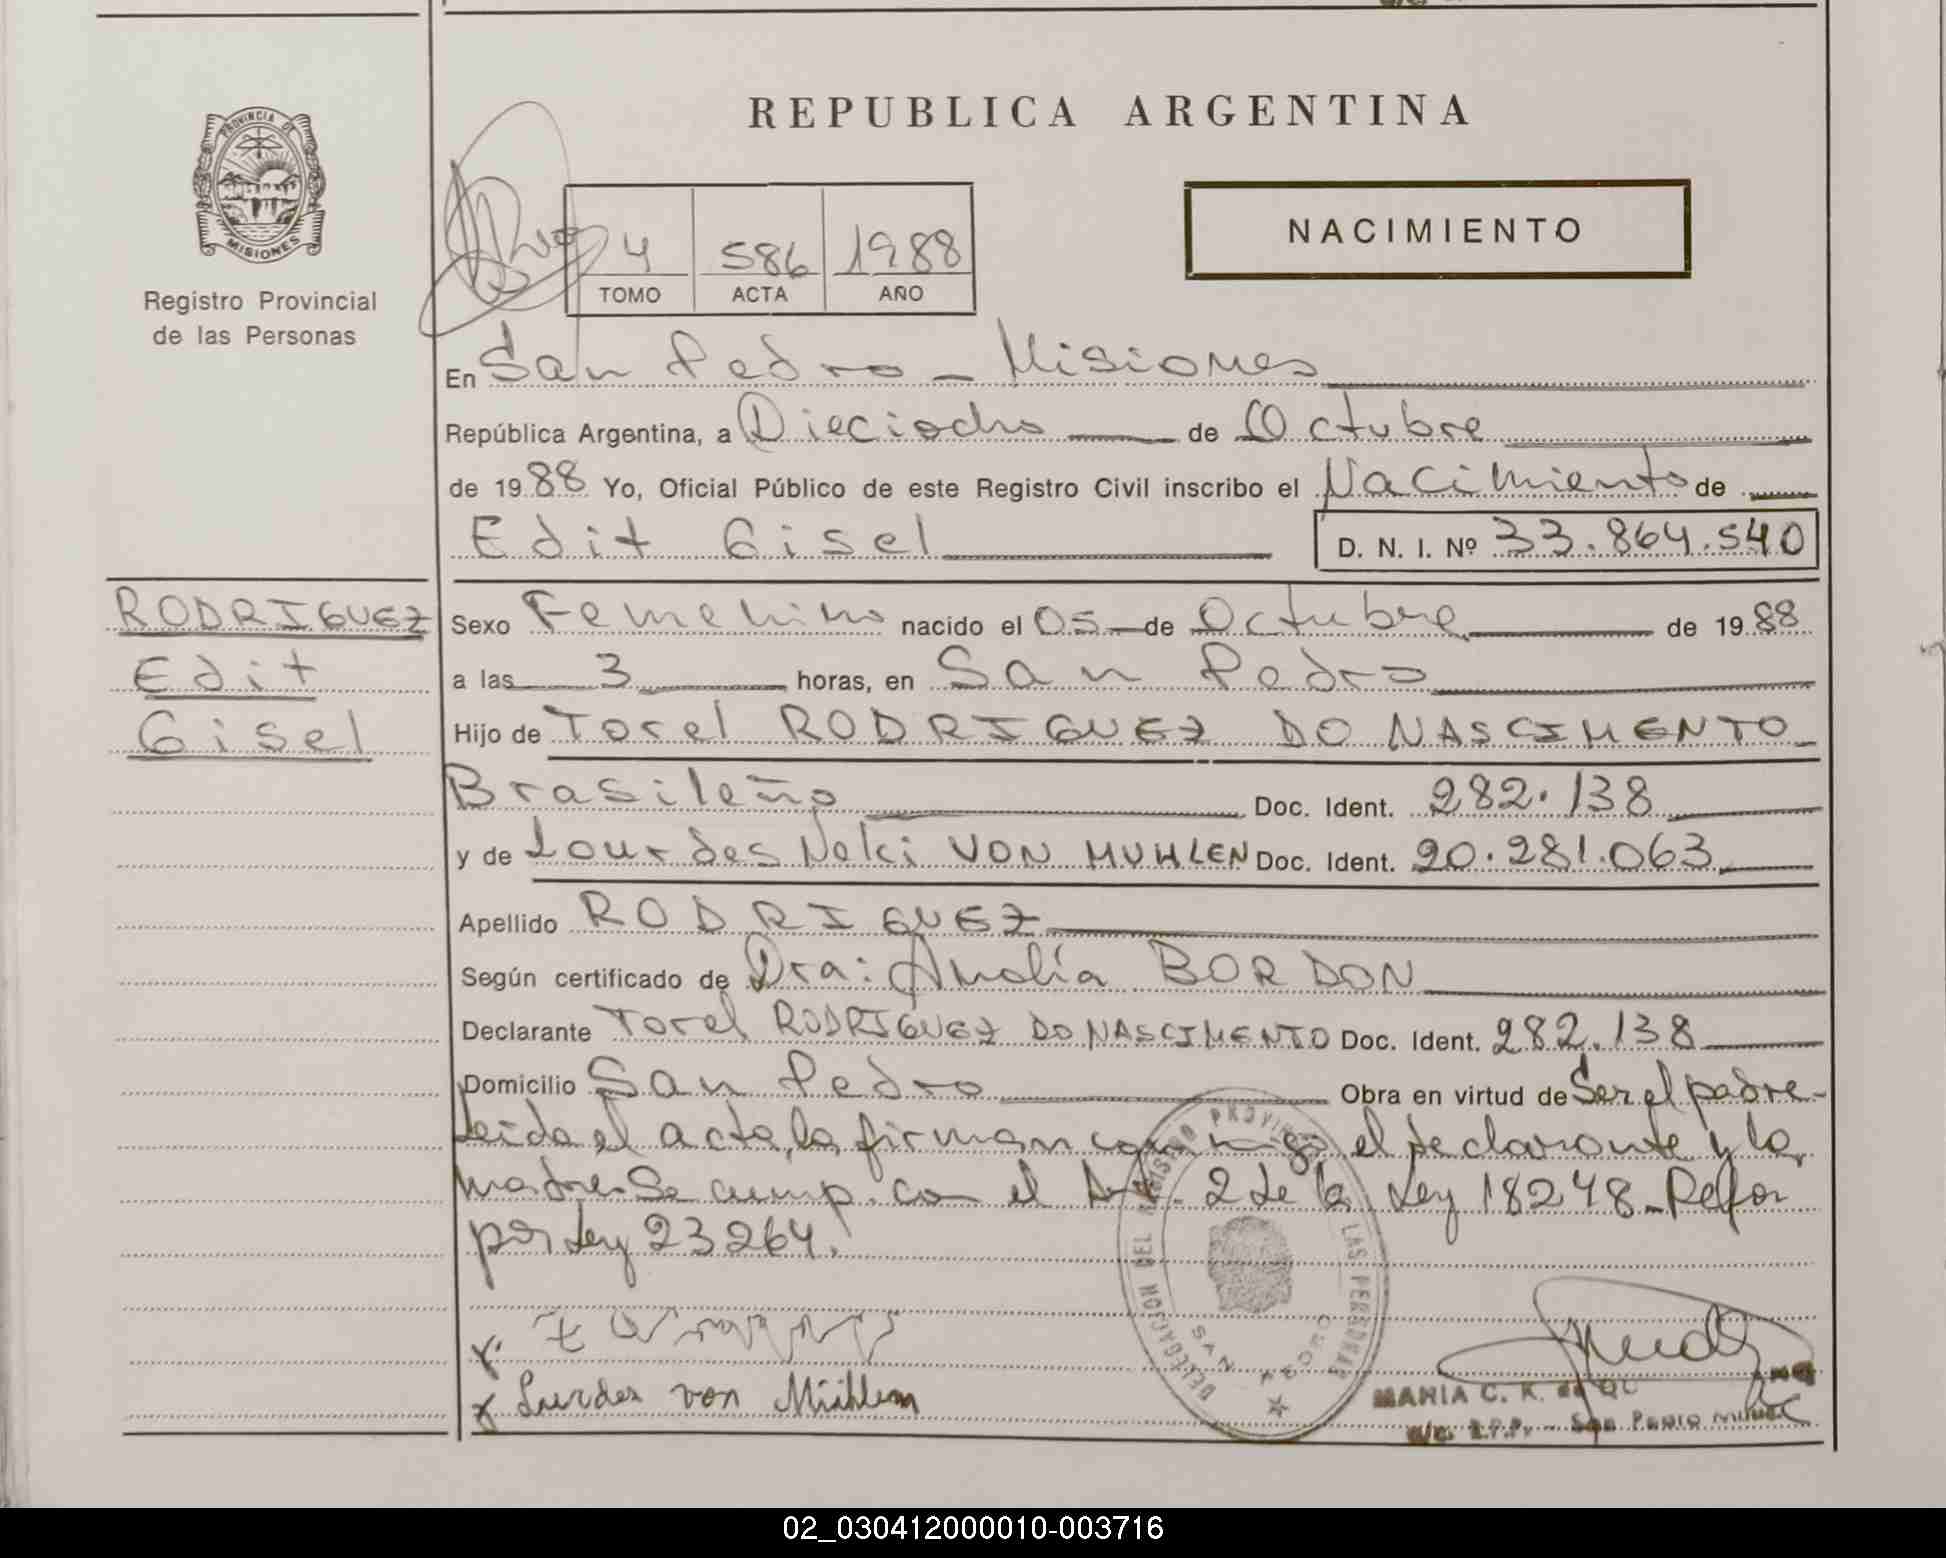 REPUBLICA ARGENTINA
PROVINCIA DE
MISIONES
Registro Provincial
de las Personas
4 586 1988
TOMO ACTA AÑO
NACIMIENTO
En San Pedro - Misiones
República Argentina, a Dieciocho de Octubre
de 1988 Yo, Oficial Público de este Registro Civil inscribo el Nacimiento de
Edit Gisel D. N. I. Nº 33.864.540
RODRIGUEZ
Edit
Gisel
Sexo Femenino nacido el 05 de Octubre de 1988
a las 3 horas, en San Pedro
Hijo de Torel RODRIGUEZ DO NASCIMENTO
Brasileño Doc. Ident. 282.138
y de Lourdes Neki VON MUHLEN Doc. Ident. 20.281.063
Apellido RODRIGUEZ
Según certificado de Dra: Analía BORDON
Declarante Torel RODRIGUEZ DO NASCIMENTO Doc. Ident. 282.138
Domicilio San Pedro Obra en virtud de Ser el padre-
Leida el acta, la firman conmigo el declarante y la
madre. Se cump. con el Art. 2 de la Ley 18248 - Refor
por Ley 23264.
DELEGACION DEL REGISTRO PROVINCIAL LAS PERSONAS
SAN PEDRO
Lurdes von Mühlem
MARIA C. K. de
San Pedro
02_030412000010-003716